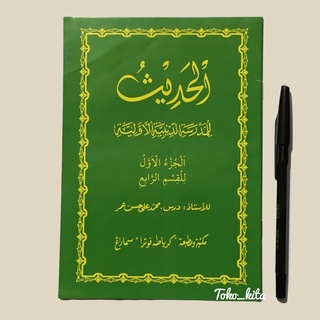 الحَدِيْثُ
للمدرسة الدينية الأولية
الجُزْءُ الأَوَّلُ
لِلْقِسْمِ الرَّابِعِ
للأستاذ: درس، محمد علي حسن عمر
مكتبة ومطبعة "كرياطه فوترا" سماراغ
Toko_kita